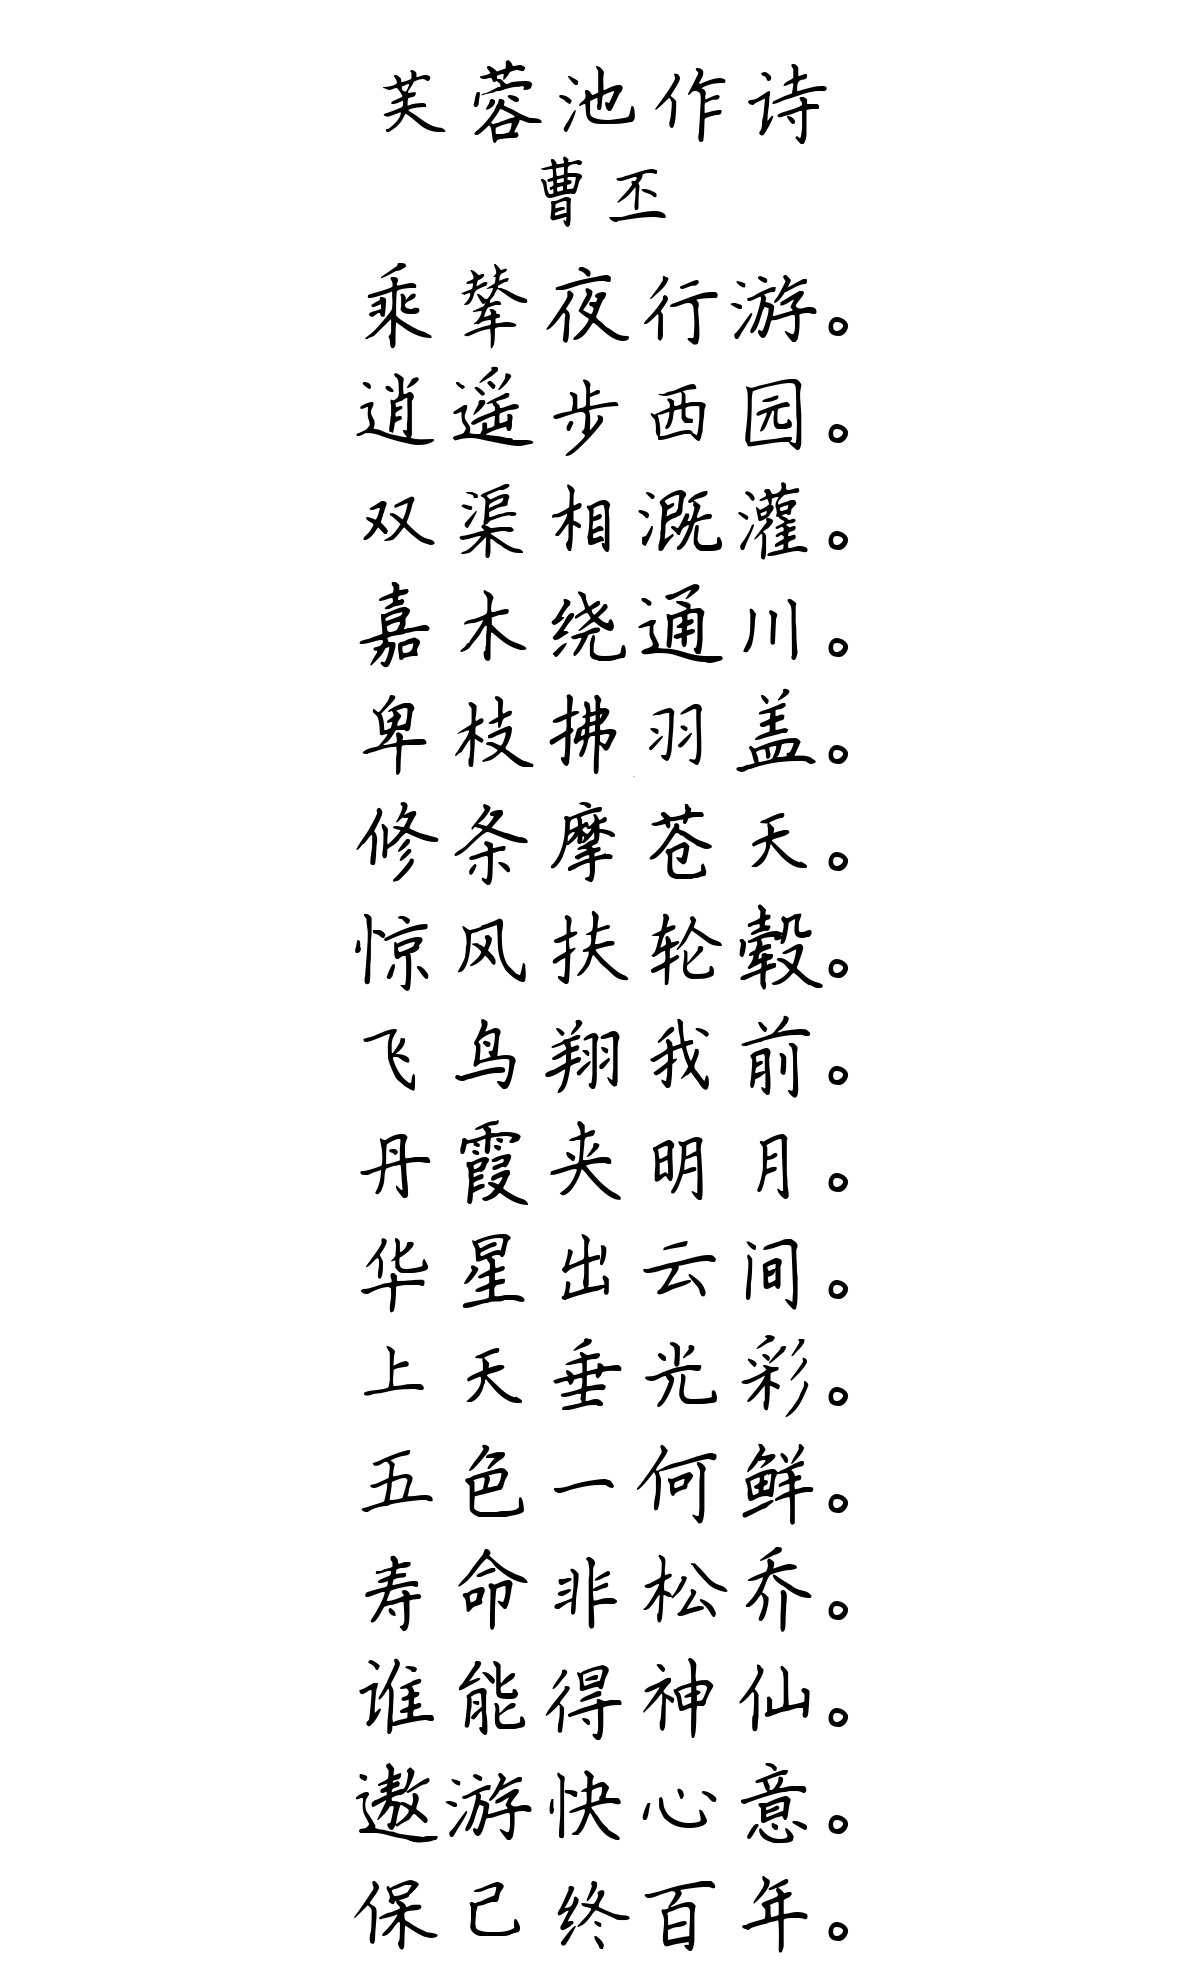 芙蓉池作诗
曹丕
乘辇夜行游。
逍遥步西园。
双渠相溉灌。
嘉木绕通川。
卑枝拂羽盖。
修条摩苍天。
惊风扶轮毂。
飞鸟翔我前。
丹霞夹明月。
华星出云间。
上天垂光彩。
五色一何鲜。
寿命非松乔。
谁能得神仙。
遨游快心意。
保己终百年。